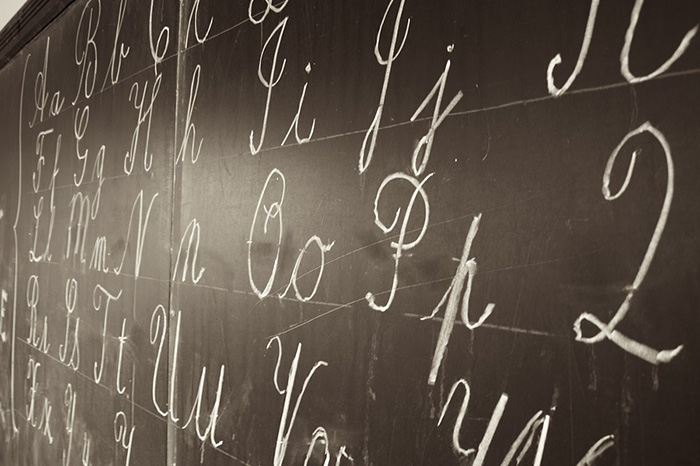 A a B b C c
F f G g H h I i J j
L l M m N n O o P p Q
R r S s T t U u V v
X x Y y